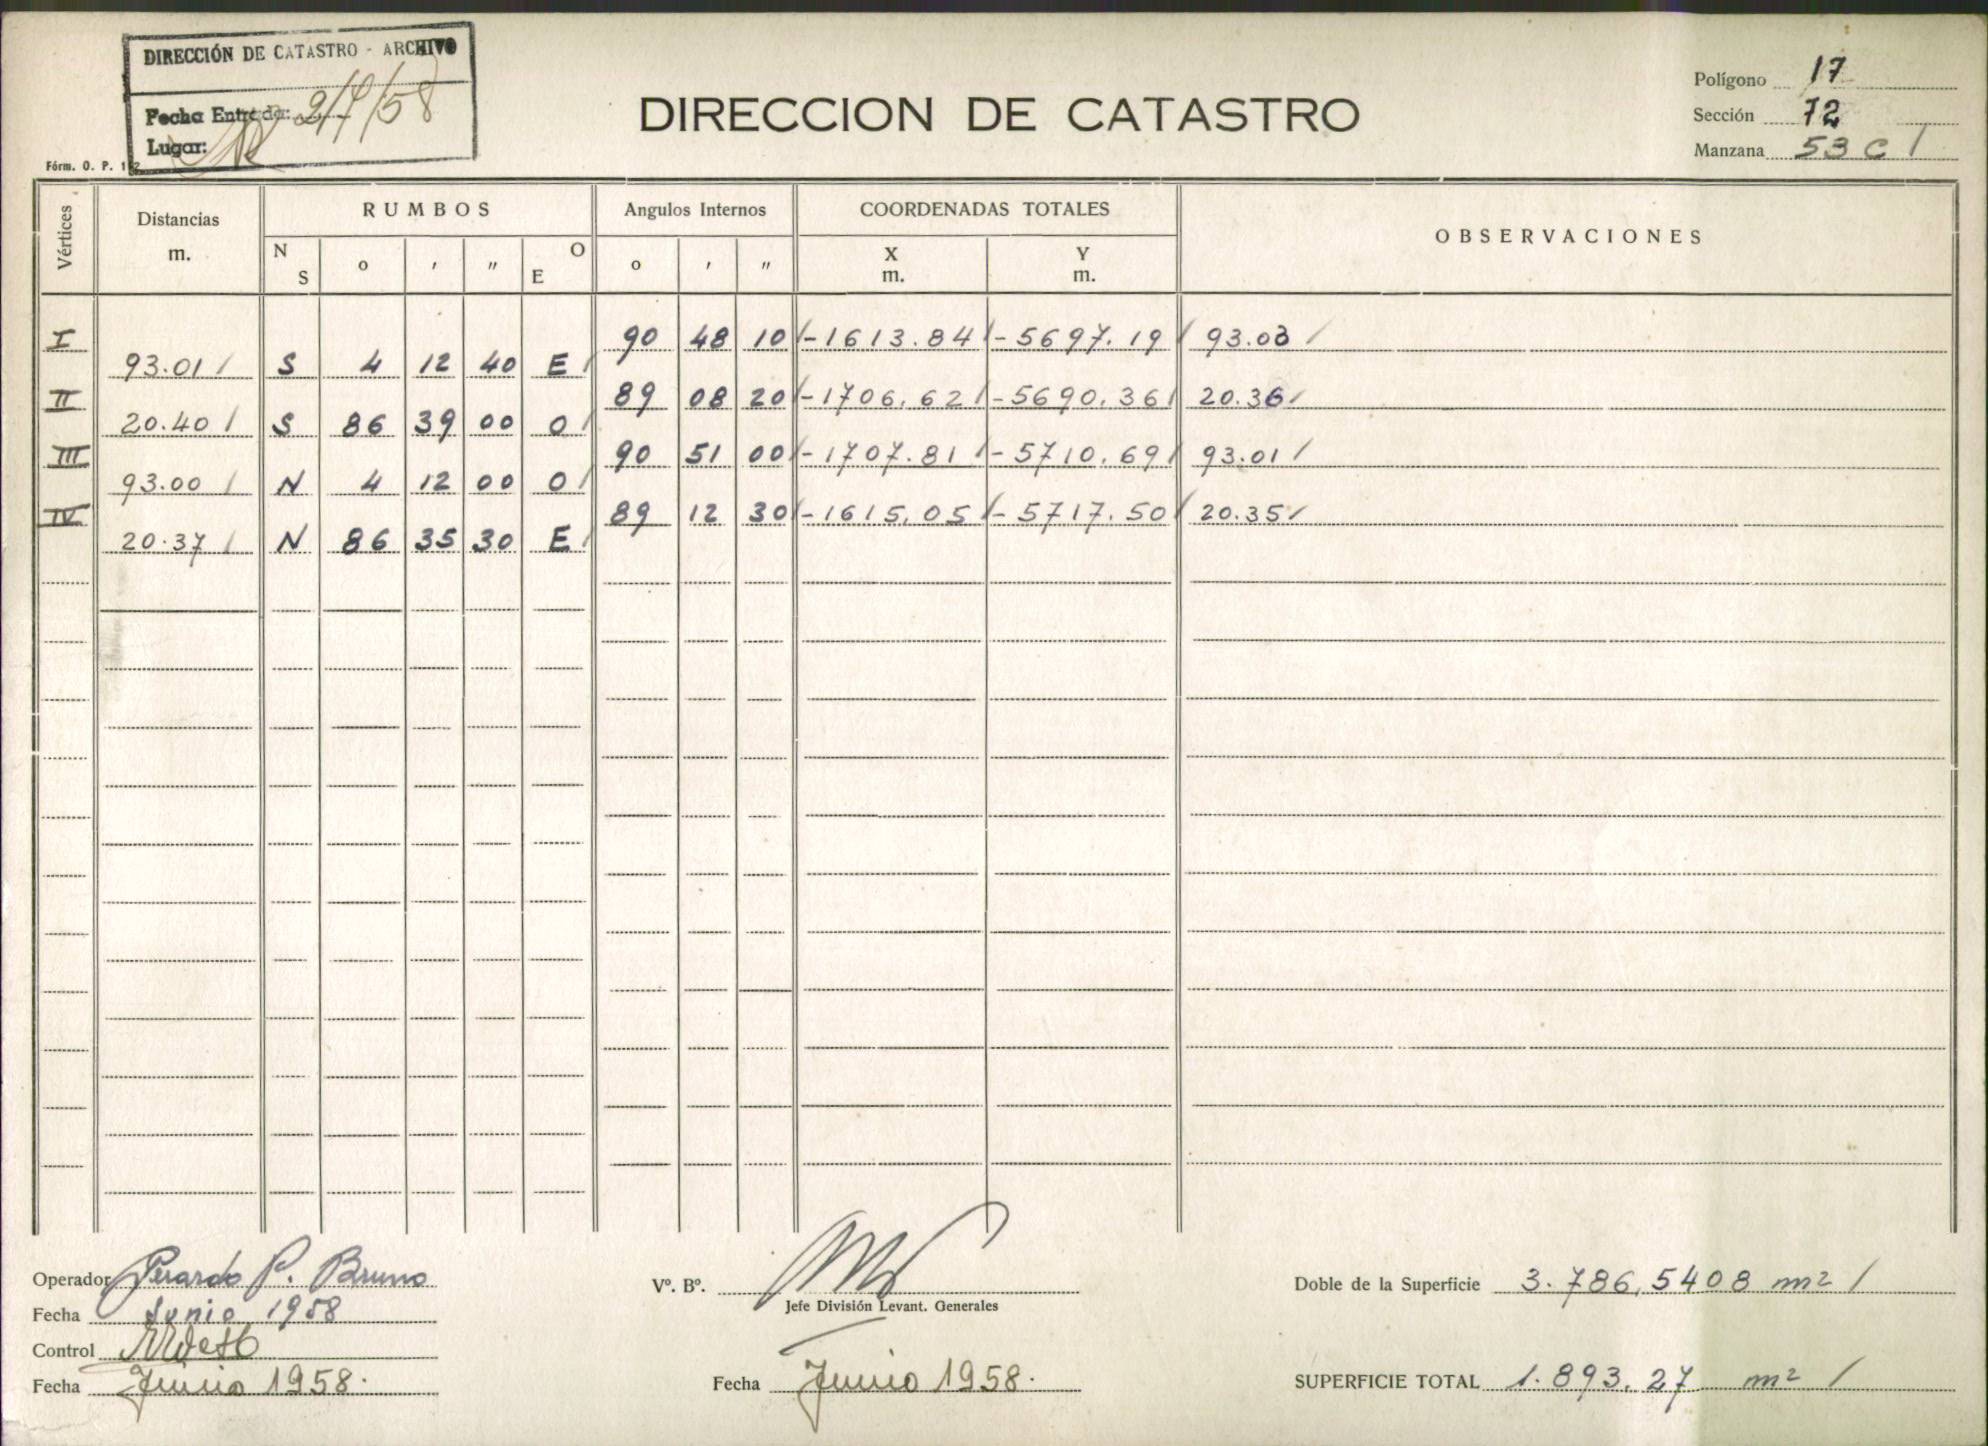 DIRECCIÓN DE CATASTRO - ARCHIVO
Fecha Entrada: 2/7/58
Lugar:
Fórm. O. P. 152
DIRECCION DE CATASTRO
Polígono 17
Sección 72
Manzana 53 C /
Vértices Distancias m. RUMBOS Angulos Internos COORDENADAS TOTALES OBSERVACIONES
N S o ' " O E o ' " X m. Y m.
I 90 48 10 / -1613.84 / -5697.19 / 93.03 /
93.01 / S 4 12 40 E /
II 89 08 20 / -1706.62 / -5690.36 / 20.36 /
20.40 / S 86 39 00 O /
III 90 51 00 / -1707.81 / -5710.69 / 93.01 /
93.00 / N 4 12 00 O /
IV 89 12 30 / -1615.05 / -5717.50 / 20.35 /
20.37 / N 86 35 30 E /
Operador Gerardo P. Bruno
Fecha Junio 1958
Control
Fecha Junio 1958.
Vº. Bº.
Jefe División Levant. Generales
Fecha Junio 1958.
Doble de la Superficie 3.786,5408 m2 /
SUPERFICIE TOTAL 1.893.27 m2 /